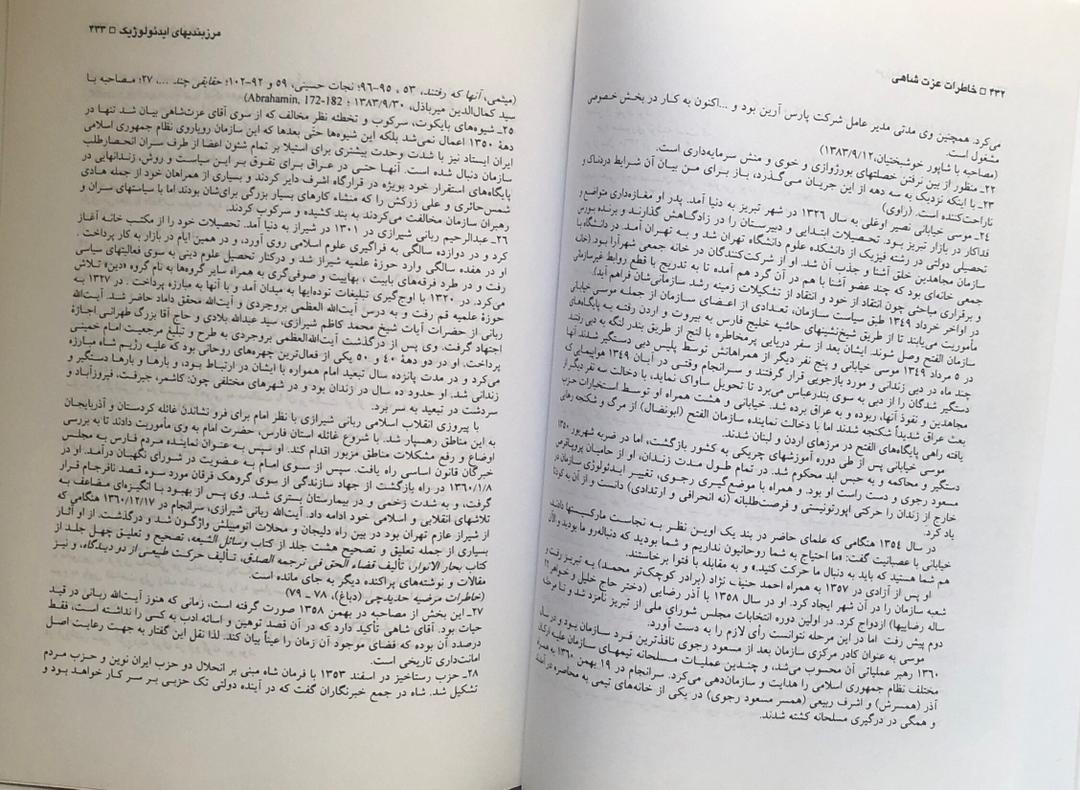 ۴۳۲ □ خاطرات عزت شاهی
می‌کرد. همچنین وی مدتی مدیر عامل شرکت پارس آرین بود و ...اکنون به کار در بخش خصوصی
مشغول است.
(مصاحبه با شاپور خوشبختیان،۱۳۸۳/۹/۱۲)
۲۲ـ منظور از بین نرفتن خصلتهای بورژوازی و خوی و منش سرمایه‌داری است.
۲۳ـ با اینکه نزدیک به سه دهه از این جریان می‌گذرد، باز برای من بیان آن شرایط دردناک و
ناراحت‌کننده است. (راوی)
۲۴ـ موسی خیابانی نصیر اوغلی به سال ۱۳۲۶ در شهر تبریز به دنیا آمد. پدر او مغازه‌داری متواضع و
فداکار در بازار تبریز بود. تحصیلات ابتدایی و دبیرستان را در زادگاهش گذارند و برنده بورس
تحصیلی دولتی در رشته فیزیک از دانشکده علوم دانشگاه تهران شد و به تهران آمد. در دانشگاه با
سازمان مجاهدین خلق آشنا و جذب آن شد. او از شرکت‌کنندگان در خانه جمعی شهرآرا بود. (خانه
جمعی خانه‌ای بود که چند عضو آشنا با هم در آن گرد هم آمده تا به تدریج با قطع روابط غیرسازمانی
و برقراری مباحثی چون انتقاد از خود و انتقاد از تشکیلات زمینه رشد سازمانی‌شان فراهم آید).
در اواخر خرداد ۱۳۴۹ طبق سیاست سازمان، تعدادی از اعضای سازمان از جمله موسی خیابانی
مأموریت می‌یابند تا از طریق شیخ‌نشینهای حاشیه خلیج فارس به بیروت و اردن رفته به پایگاه‌های
سازمان الفتح وصل شوند. ایشان بعد از سفر دریایی پرمخاطره با لنج از طریق بندر لنگه به دبی رفتند
در ۵ مرداد ۱۳۴۹ موسی خیابانی و پنج نفر دیگر از همراهانش توسط پلیس دبی دستگیر شدند آنها
چند ماه در دبی زندانی و مورد بازجویی قرار گرفتند و سرانجام وقتی در آبان ۱۳۴۹ هواپیمایی که
دستگیر شدگان را از دبی به سوی بندرعباس می‌برد تا تحویل ساواک نماید، با دخالت سه نفر دیگر از
مجاهدین و نفوذ آنها، ربوده و به عراق برده شد. خیابانی و هشت همراه او توسط استخبارات حزب
بعث عراق شدیداً شکنجه شدند اما با دخالت نماینده سازمان الفتح (ابونضال) از مرگ و شکنجه رهایی
یافته راهی پایگاه‌های الفتح در مرزهای اردن و لبنان شدند.
موسی خیابانی پس از طی دوره آموزشهای چریکی به کشور بازگشت، اما در ضربه شهریور ۱۳۵۰
دستگیر و محاکمه و به حبس ابد محکوم شد. در تمام طول مدت زندان، او از حامیان پروپاقرص
مسعود رجوی و دست راست او بود. و همراه با موضع‌گیری رجوی، تغییر ایدئولوژی سازمان در
خارج از زندان را حرکتی اپورتونیستی و فرصت‌طلبانه (نه انحرافی و ارتدادی) دانست و از آن به کودتا
یاد کرد.
در سال ۱۳۵۴ هنگامی که علمای حاضر در بند یک اوین نظر به نجاست مارکسیستها دادند،
خیابانی با عصبانیت گفت: «ما احتیاج به شما روحانیون نداریم و شما بودید که دنباله‌رو ما بودید و الآن
هم شما هستید که باید به دنبال ما حرکت کنید.» و به مقابله با فتوا برخاستند.
او پس از آزادی در ۱۳۵۷ به همراه احمد حنیف نژاد (برادر کوچک‌تر محمد) به تبریز رفت و
شعبه سازمان را در آن شهر ایجاد کرد. او در سال ۱۳۵۸ با آذر رضایی (دختر حاج خلیل و خواهر
ساله رضاییها) ازدواج کرد. در اولین دوره انتخابات مجلس شورای ملی از تبریز نامزد شد و تا مرحله
دوم پیش رفت اما در این مرحله نتوانست رأی لازم را به دست آورد.
موسی به عنوان کادر مرکزی سازمان بعد از مسعود رجوی نافذترین فرد سازمان بود و در سال
۱۳۶۰ رهبر عملیاتی آن محسوب می‌شد، و چندین عملیات مسلحانه تیمهای سازمان علیه ارکان
مختلف نظام جمهوری اسلامی را هدایت و سازمان‌دهی می‌کرد. سرانجام در ۱۹ بهمن ۱۳۶۰ به همراه
آذر (همسرش) و اشرف ربیعی (همسر مسعود رجوی) در یکی از خانه‌های تیمی به محاصره در آمدند
و همگی در درگیری مسلحانه کشته شدند.
مرزبندیهای ایدئولوژیک □ ۴۳۳
(میثمی، آنها که رفتند، ۵۳ ، ۹۵ -۹۶؛ نجات حسینی، ۵۹ و ۹۲-۱۰۲؛ حقایقی چند ...، ۲۷؛ مصاحبه با
سید کمال‌الدین میرباذل، ۱۳۸۳/۹/۳۰ ؛ Abrahamin, 172-182)
۲۵ـ شیوه‌های بایکوت، سرکوب و تخطئه نظر مخالف که از سوی آقای عزت‌شاهی بیان شد تنها در
دههٔ ۱۳۵۰ اعمال نمی‌شد بلکه این شیوه‌ها حتّی بعدها که این سازمان رویاروی نظام جمهوری اسلامی
ایران ایستاد نیز با شدت وحدت بیشتری برای استیلا بر تمام شئون اعضا از طرف سران انحصارطلب
سازمان دنبال شده است. آنها حتی در عراق برای تفوق بر این سیاست و روش، زندانهایی در
پایگاه‌های استقرار خود بویژه در قرارگاه اشرف دایر کردند و بسیاری از همراهان خود از جمله هادی
شمس‌حائری و علی زرکش را که منشاء کارهای بسیار بزرگی برای‌شان بودند اما با سیاستهای سران و
رهبران سازمان مخالفت می‌کردند به بند کشیده و سرکوب کردند.
۲۶ـ عبدالرحیم ربانی شیرازی در ۱۳۰۱ در شیراز به دنیا آمد. تحصیلات خود را از مکتب خانه آغاز
کرد و در دوازده سالگی به فراگیری علوم اسلامی روی آورد، و در همین ایام در بازار به کار پرداخت .
او در هفده سالگی وارد حوزهٔ علمیه شیراز شد و درکنار تحصیل علوم دینی به سوی فعالیتهای سیاسی
رفت و در طرد فرقه‌های بابیت ، بهاییت و صوفی‌گری به همراه سایر گروه‌ها به نام گروه «دین» تلاش
می‌کرد. در ۱۳۲۰ با اوج‌گیری تبلیغات توده‌ایها به میدان آمد و با آنها به مبارزه پرداخت . در ۱۳۲۷ به
حوزهٔ علمیه قم رفت و به درس آیت‌الله العظمی بروجردی و آیت‌الله محقق داماد حاضر شد. آیت‌الله
ربانی از حضرات آیات شیخ محمد کاظم شیرازی، سید عبدالله بلادی و حاج آقا بزرگ طهرانی اجازهٔ
اجتهاد گرفت. وی پس از درگذشت آیت‌الله‌العظمی بروجردی به طرح و تبلیغ مرجعیت امام خمینی
پرداخت. او در دو دههٔ ۴۰ و ۵۰ یکی از فعال‌ترین چهره‌های روحانی بود که علیه رژیم شاه مبارزه
می‌کرد و در مدت پانزده سال تبعید امام همواره با ایشان در ارتباط بود، و بارها و بارها دستگیر و
زندانی شد. او حدود ده سال در زندان بود و در شهرهای مختلفی چون: کاشمر، جیرفت، فیروزآباد و
سردشت در تبعید به سر برد.
با پیروزی انقلاب اسلامی ربانی شیرازی با نظر امام برای فرو نشاندن غائله کردستان و آذربایجان
به این مناطق رهسپار شد. با شروع غائله استان فارس، حضرت امام به وی مأموریت دادند تا به بررسی
اوضاع و رفع مشکلات مناطق مزبور اقدام کند. او سپس به عنوان نماینده مردم فارس به مجلس
خبرگان قانون اساسی راه یافت. سپس از سوی امام به عضویت در شورای نگهبان درآمد. او در
۱۳۶۰/۱/۸ در راه بازگشت از جهاد سازندگی از سوی گروهک فرقان مورد سوء قصد نافرجام قرار
گرفت، و به شدت زخمی و در بیمارستان بستری شد. وی پس از بهبود با انگیزه‌ای مضاعف به
تلاشهای انقلابی و اسلامی خود ادامه داد. آیت‌الله ربانی شیرازی، سرانجام در ۱۳۶۰/۱۲/۱۷ هنگامی که
از شیراز عازم تهران بود در بین راه دلیجان و محلات اتومبیلش واژگون شد و درگذشت. از او آثار
بسیاری از جمله تعلیق و تصحیح هشت جلد از کتاب وسائل الشیعه، تصحیح و تعلیق چهل جلد از
کتاب بحار الانوار، تألیف قضاء الحق فی ترجمه الصدق، تألیف حرکت طبیعی از دو دیدگاه، و نیز
مقالات و نوشته‌های پراکنده دیگر به جای مانده است.
(خاطرات مرضیه حدیدچی (دباغ)، ۷۸ - ۷۹)
۲۷ـ این بخش از مصاحبه در بهمن ۱۳۵۸ صورت گرفته است، زمانی که هنوز آیت‌الله ربانی در قید
حیات بود. آقای شاهی تأکید دارد که در آن قصد توهین و اسائه ادب به کسی را نداشته است، فقط
درصدد آن بوده که فضای موجود آن زمان را عیناً بیان کند. لذا نقل این گفتار به جهت رعایت اصل
امانت‌داری تاریخی است.
۲۸ـ حزب رستاخیز در اسفند ۱۳۵۳ با فرمان شاه مبنی بر انحلال دو حزب ایران نوین و حزب مردم
تشکیل شد. شاه در جمع خبرنگاران گفت که در آینده دولتی تک حزبی بر سر کار خواهد بود و